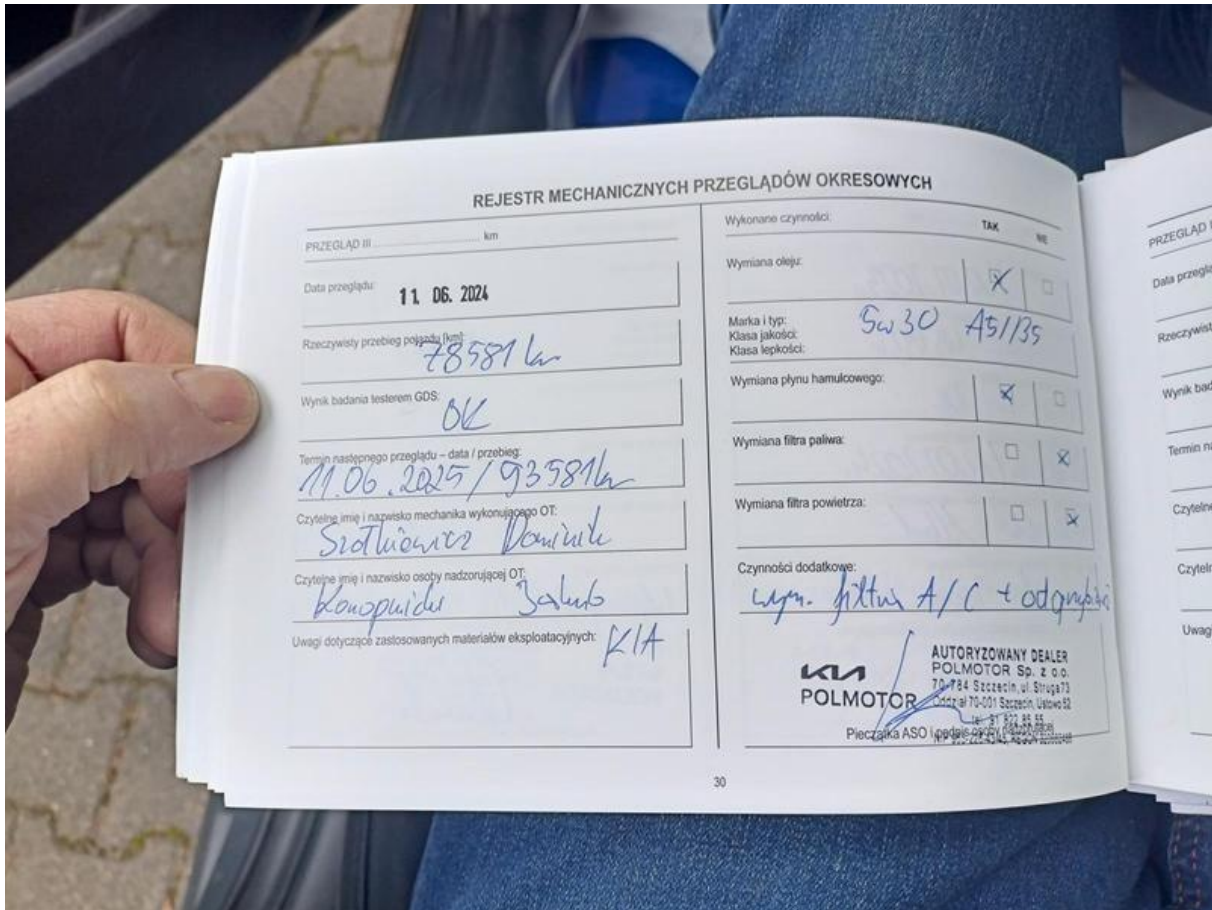 REJESTR MECHANICZNYCH PRZEGLĄDÓW OKRESOWYCH
PRZEGLĄD III ........................ km
Data przeglądu: 11. 06. 2024
Rzeczywisty przebieg pojazdu [km]:
78581 km
Wynik badania testerem GDS:
OK
Termin następnego przeglądu – data / przebieg:
11.06.2025/93581 km
Czytelne imię i nazwisko mechanika wykonującego OT:
Dominik
Czytelne imię i nazwisko osoby nadzorującej OT:
Jakub
Uwagi dotyczące zastosowanych materiałów eksploatacyjnych: KIA
Wykonane czynności: TAK NIE
Wymiana oleju:
Marka i typ:
Klasa jakości:
Klasa lepkości:
5w30 A5/B5
Wymiana płynu hamulcowego:
Wymiana filtra paliwa:
Wymiana filtra powietrza:
Czynności dodatkowe:
wym. filtra A/C +
KIA
POLMOTOR
AUTORYZOWANY DEALER
POLMOTOR Sp. z o.o.
70-784 Szczecin, ul. Struga 73
Oddział 70-001 Szczecin, Ustowo 52
tel. 91 822 85 55
Pieczątka ASO i podpis osoby
30
PRZEGLĄD
Data przeglą
Rzeczywist
Wynik bad
Termin na
Czytelne
Czyteln
Uwag